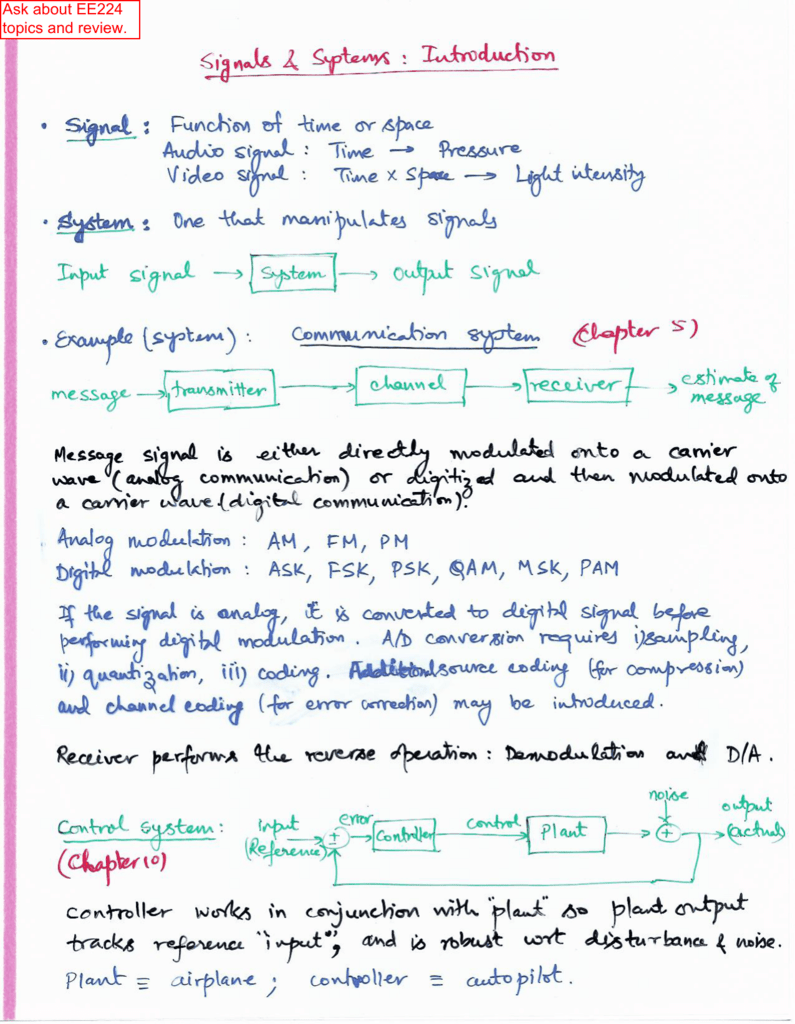 Ask about EE224
topics and review.
Signals & Systems : Introduction
• Signal : Function of time or space
Audio signal : Time → Pressure
Video signal : Time x Space → Light intensity
• System : One that manipulates signals
Input signal → System → output signal
• Example (system) : Communication system (Chapter 5)
message → transmitter → channel → receiver → estimate of message
Message signal is either directly modulated onto a carrier
wave (analog communication) or digitized and then modulated onto
a carrier wave (digital communication).
Analog modulation : AM, FM, PM
Digital modulation : ASK, FSK, PSK, QAM, MSK, PAM
If the signal is analog, it is converted to digital signal before
performing digital modulation. A/D conversion requires i) sampling,
ii) quantization, iii) coding. Additional source coding (for compression)
and channel coding (for error correction) may be introduced.
Receiver performs the reverse operation : Demodulation and D/A.
Control system : input (Reference) ± error Controller control Plant noise + output (actual)
(Chapter 10)
Controller works in conjunction with "plant" so plant output
tracks reference "input", and is robust wrt disturbance & noise.
Plant ≡ airplane ; controller ≡ autopilot.